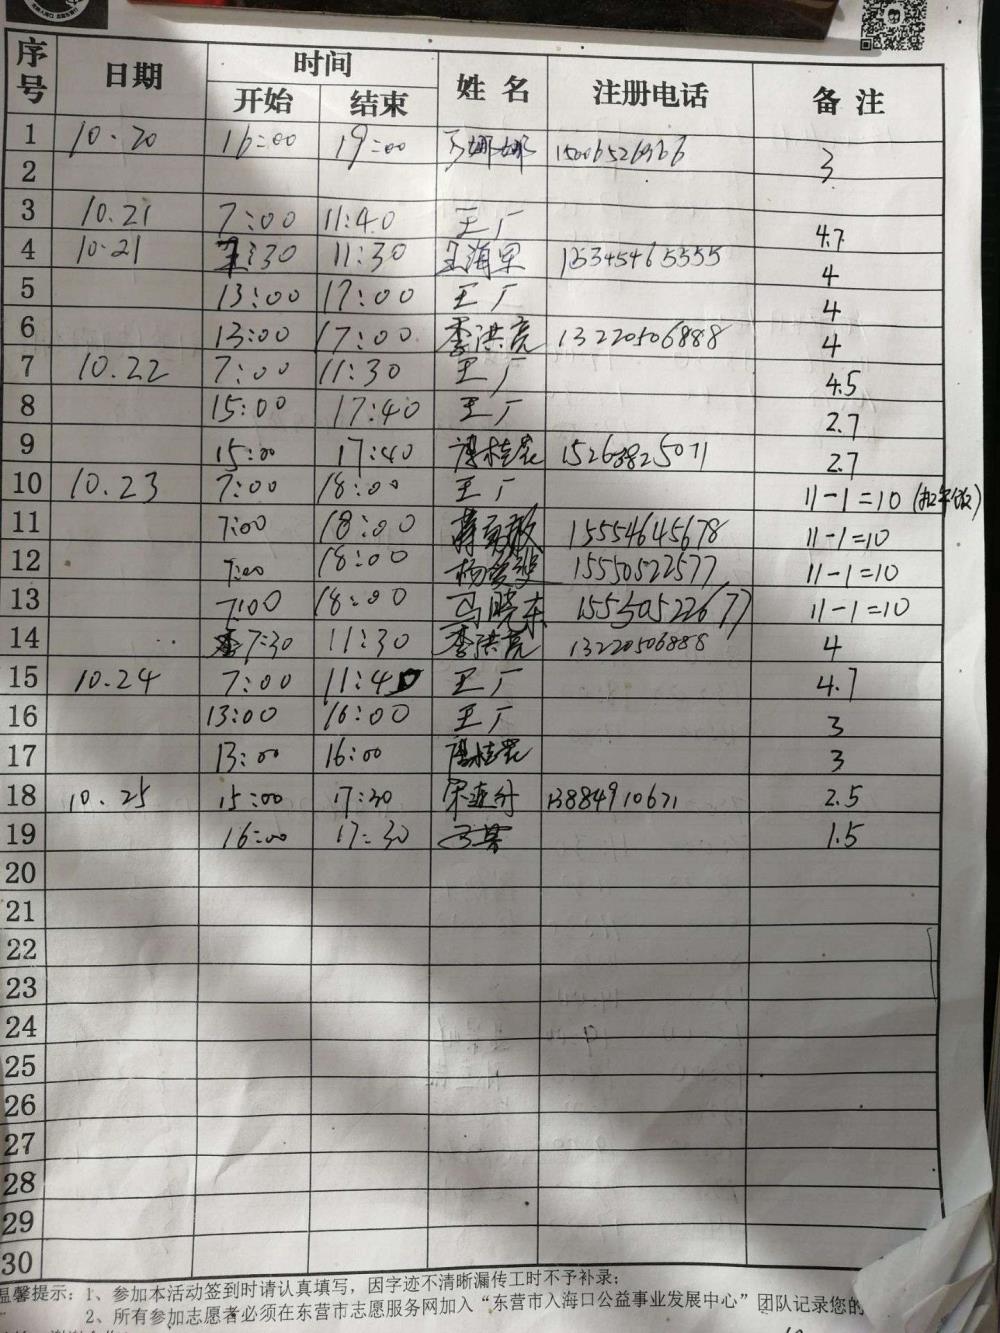 序号 日期 时间 姓名 注册电话 备注
开始 结束
1 10.20 16:00 19:00 马娜娜 15006526966 3
2
3 10.21 7:00 11:40 王厂 4.7
4 10.21 7:30 11:30 王海军 4
5 13:00 17:00 王厂 4
6 13:00 17:00 李洪亮 13220506888 4
7 10.22 7:00 11:30 王厂 4.5
8 15:00 17:40 王厂 2.7
9 15:00 17:40 15263825071 2.7
10 10.23 7:00 18:00 王厂 11-1=10 (扣午饭)
11 7:00 18:00 15554645678 11-1=10
12 7:00 18:00 15550522577 11-1=10
13 7:00 18:00 马晓东 15530522677 11-1=10
14 7:30 11:30 李洪亮 13220506888 4
15 10.24 7:00 11:40 王厂 4.7
16 13:00 16:00 王厂 3
17 13:00 16:00 3
18 10.25 15:00 17:30 13884910671 2.5
19 16:00 17:30 1.5
20
21
22
23
24
25
26
27
28
29
30
温馨提示：1、参加本活动签到时请认真填写，因字迹不清晰漏传工时不予补录；
2、所有参加志愿者必须在东营市志愿服务网加入“东营市入海口公益事业发展中心”团队记录您的